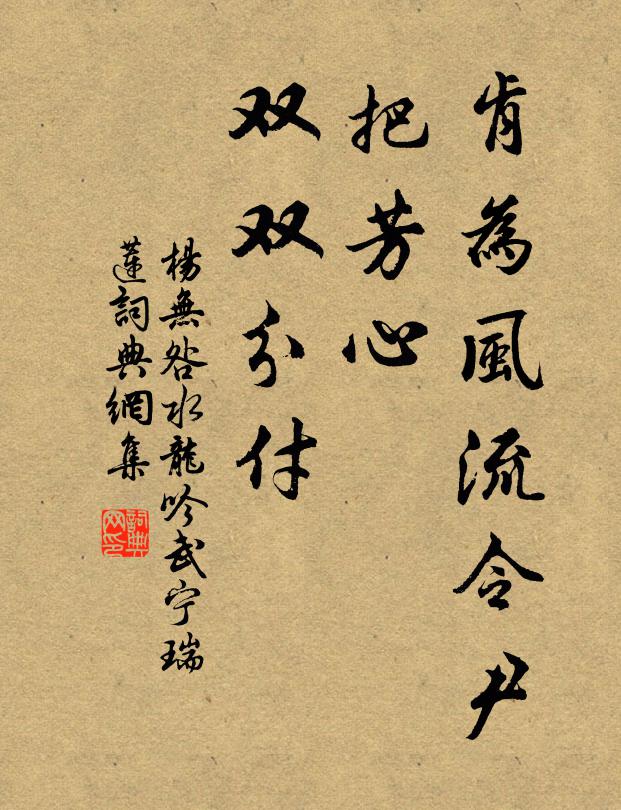 肯為風流令尹
把芳心
双双分付
楊無咎水龍吟武宁瑞
蓮詞典網集
詞典
网印